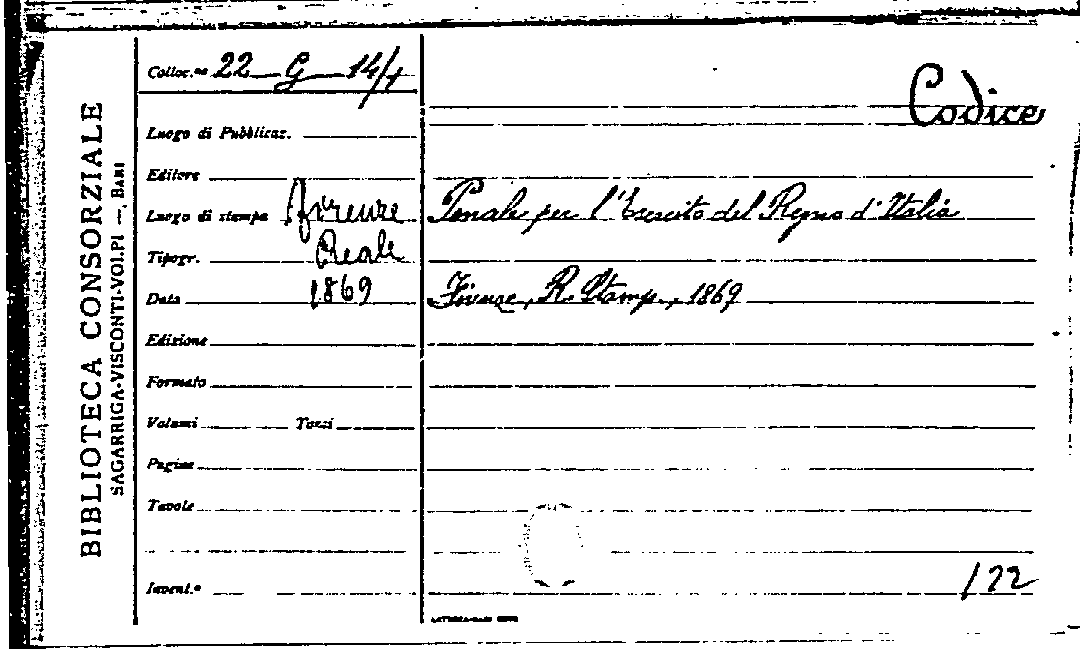 BIBLIOTECA CONSORZIALE
SAGARRIGA-VISCONTI-VOLPI —, BARI
Colloc.ne 22 G 14/1
Luogo di Pubblicaz.
Editore
Luogo di stampa Firenze
Tipogr. Reale
Data 1869
Edizione
Formato
Volumi Tomi
Pagine
Tavole
Invent.o
Codice
Penale per l'Esercito del Regno d'Italia
Firenze, R. Stamp., 1869
122